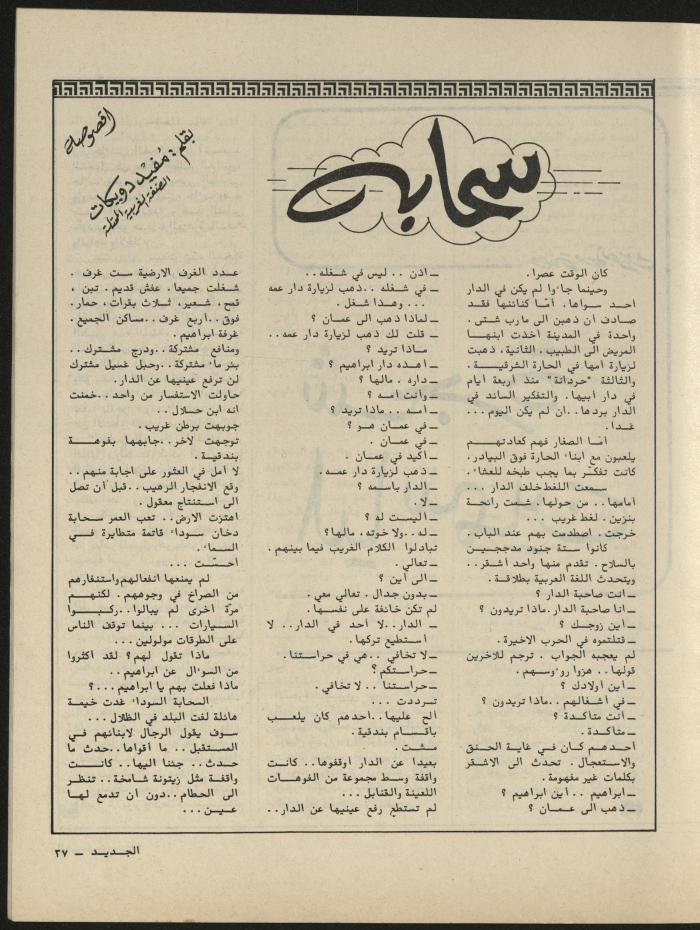 اقصوصة
بقلم: مفيد دويكات
الضفة الغربية المحتلة
سحابة
كان الوقت عصرا .
وحينما جاءوا لم يكن في الدار
احد سواها . أمّا كنائنها فقد
صادف أن ذهبن الى مآرب شتى .
واحدة في المدينة أخذت ابنهـا
المريض الى الطبيب . الثانية، ذهبت
لزيارة أمها في الحارة الشرقيـــة .
والثالثة "حردانة" منذ أربعة أيام
في دار أبيها . والتفكير السائد في
الدار بردها . . ان لم يكن اليوم . . .
غـدا .
أمّا الصغار فهم كعادتهـــم
يلعبون مع ابناء الحارة فوق البيادر .
كانت تفكّر بما يجب طبخه للعشاء .
سمعت اللغط خلف الدار . . .
أمامها . . من حولها . شمت رائحـة
بنزين . لغط غريب . . .
خرجت . اصطدمت بهم عند الباب .
كانوا ستة جنود مدججيــن
بالسلاح . تقدم منها واحد أشقر . .
ويتحدث اللغة العربية بطلاقـة .
ـ انت صاحبة الدار ؟
ـ انا صاحبة الدار . ماذا تريدون ؟
ـ أين زوجـك ؟
ـ قتلتموه في الحرب الاخيرة .
لم يعجبه الجواب . ترجم للآخرين
قولها . . هزوا رؤوسهم .
ـ أين أولادك ؟
ـ في أشغالهم . . ماذا تريدون ؟
ـ أنت متأكـدة ؟
ـ متأكـدة .
أحدهـم كـان فـي غايـة الحنـق
والاستعجال . تحدث الى الاشقـر
بكلمات غير مفهومة .
ـ ابراهيم . . أين ابراهيم ؟
ـ ذهب الى عمـان ؟
ـ اذن . . ليس في شغله . .
ـ في شغله . . ذهب لزيارة دار عمه
. . . وهـذا شـغل .
ـ لماذا ذهب الى عمان ؟
ـ قلت لك ذهب لزيارة دار عمه . .
مـاذا تريد ؟
ـ أهـذه دار ابراهيم ؟
ـ داره . مالها ؟
ـ وأنت أمـه ؟
ـ أمـه . . ماذا تريد ؟
ـ في عمـان هـو ؟
ـ في عمـان .
ـ أكيد في عمـان .
ـ ذهب لزيارة دار عمـه .
ـ الدار باسمه ؟
ـ لا .
ـ أليست له ؟
ـ له . . ولاخوته، مالها ؟
تبادلوا الكلام الغريب فيما بينهم .
ـ تعالي .
ـ الى أين ؟
ـ بدون جدال . تعالي معي .
لم تكن خائفة على نفسهـا .
ـ الدار . . لا أحد في الدار . . لا
أستطيع تركها .
ـ لا تخافي . . هي في حراستنا .
ـ حراستكم ؟
ـ حراستنا . . لا تخافي .
تـرددت . . .
ألح عليها . . احدهم كان يلعـب
بأقسـام بندقيـة .
مـشـت .
بعيدا عن الدار أوقفوها . . كانـت
واقفة وسط مجموعة من الفوهـات
اللعينة والقنابل . . .
لم تستطع رفع عينيها عن الدار . .
عـدد الغرف الارضية ست غرف .
شغلت جميعا . عفش قديم . تبن ،
قمح، شعير، ثـلاث بقرات، حمار .
فوق . . أربع غرف . . مساكن الجميع .
غرفة ابراهيم .
ومنافع مشتركة . . ودرج مشتـرك . .
بئر ماء مشتركة . . وحبل غسيل مشترك
لن ترفع عينيها عن الدار .
حاولت الاستفسار من واحد . . خمنت
انه ابن حـلال . .
جوبهت برطن غريب .
توجهت لآخر . . جابهها بفوهـة
بندقيـة .
لا أمل في العثور على اجابة منهم . .
وقع الانفجار الرهيب . . قبل أن تصل
الى استنتاج معقول .
اهتزت الارض . . تعب العمر سحابة
دخان سوداء قاتمة متطايرة فـي
السمـاء .
أحـسّـت . . .
لم يمنعها انفعالهم واستنفارهم
من الصراخ في وجوههم . لكنهــم
مرّة أخرى لم يبالوا . . ركـبــوا
السيارات . . . بينما توقف الناس
على الطرقات مولولين . . .
ماذا تقول لهم؟ لقد أكثروا
من السؤال عن ابراهيم . .
ماذا فعلت بهم يا ابراهيم . . . ؟
السحابة السوداء غدت خيمـة
هائلة لفت البلد في الظلال . . .
سوف يقول الرجال لابنائهم فـي
المستقبل . . ما أقواها . . حدث ما
حدث . . جئنا اليها . . كانـــت
واقفة مثل زيتونة شامخة . . تنظـر
الى الحطام . . دون أن تدمع لهـا
عيـن . . .
الجـديـد ـ ٣٧